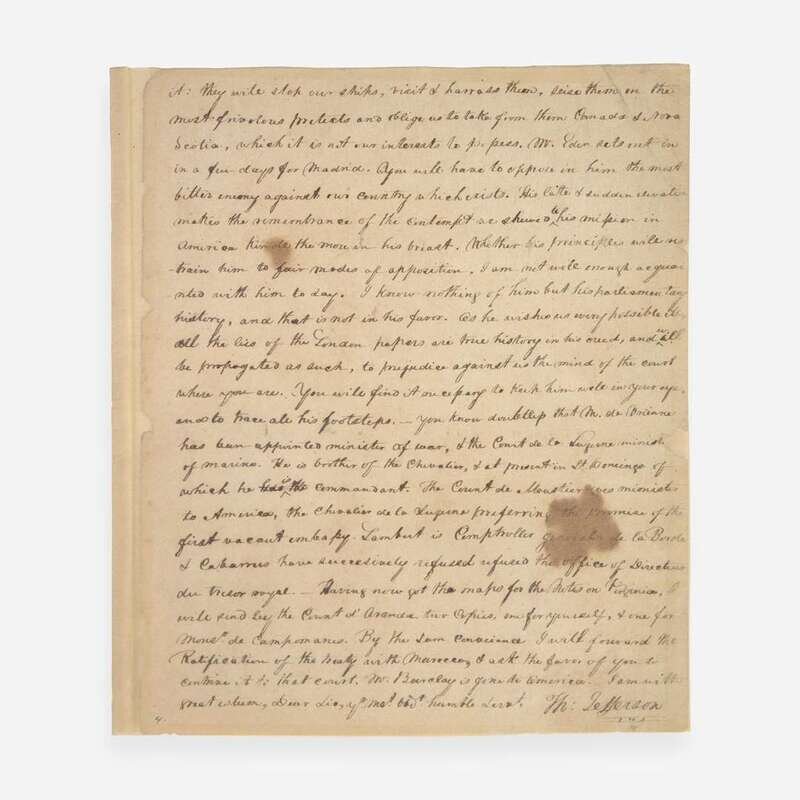 it: they will stop our ships, visit & harrass them, seise them on the
most frivolous pretexts and oblige us to take from them Canada & Nova
Scotia, which it is not our interests to possess. Mr. Eden sets out in
in a few days for Madrid. You will have to oppose in him the most
bitter enemy against our country which exists. His late & sudden elevation
makes the remembrance of the contempt we shewed to his mission in
America rankle the more in his breast. Whether his principles will res
train him to fair modes of opposition, I am not well enough acquai
nted with him to say. I know nothing of him but his parliamentary
history, and that is not in his favor. As he wishes us every possible ill
all the lies of the London papers are true history in his creed, and will
be propagated as such, to prejudice against us the mind of the court
where you are. You will find it necessary to keep him well in your eye,
and to trace all his footsteps. — You know doubtless that M. de Brienne
has been appointed minister of war, & the Count de la Luzerne minister
of marine. He is brother of the Chevalier, & at present in St. Domingo of
which he is commandant. The Count de Moustier goes minister
to America, the Chevalier de la Luzerne preferring the promise of the
first vacant embassy. Lambert is Comptroller general. de la Borde
& Cabarrus have successively refused refused the office of Directeur
du tresor royal. — Having now got the maps for the Notes on Virginia, I
will send by the Count d'Aranda two copies, one for yourself, & one for
Monsr. de Campomanes. By the same conveiance I will forward the
Ratification of the treaty with Marocco, & ask the favor of you to
contrive it to that court. Mr. Barclay is gone to America. I am with
great esteem, Dear Sir, yr. mot. obdt. humble Servt. Th: Jefferson
4.